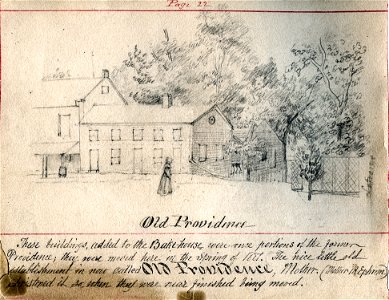 Page 22
Old Providence
These buildings, added to the Bakehouse, were once portions of the former
Providence; they were moved here in the Spring of 1871. The nice little old
establishment is now called Old Providence, Mother
christened it so, when they was near finished being moved.